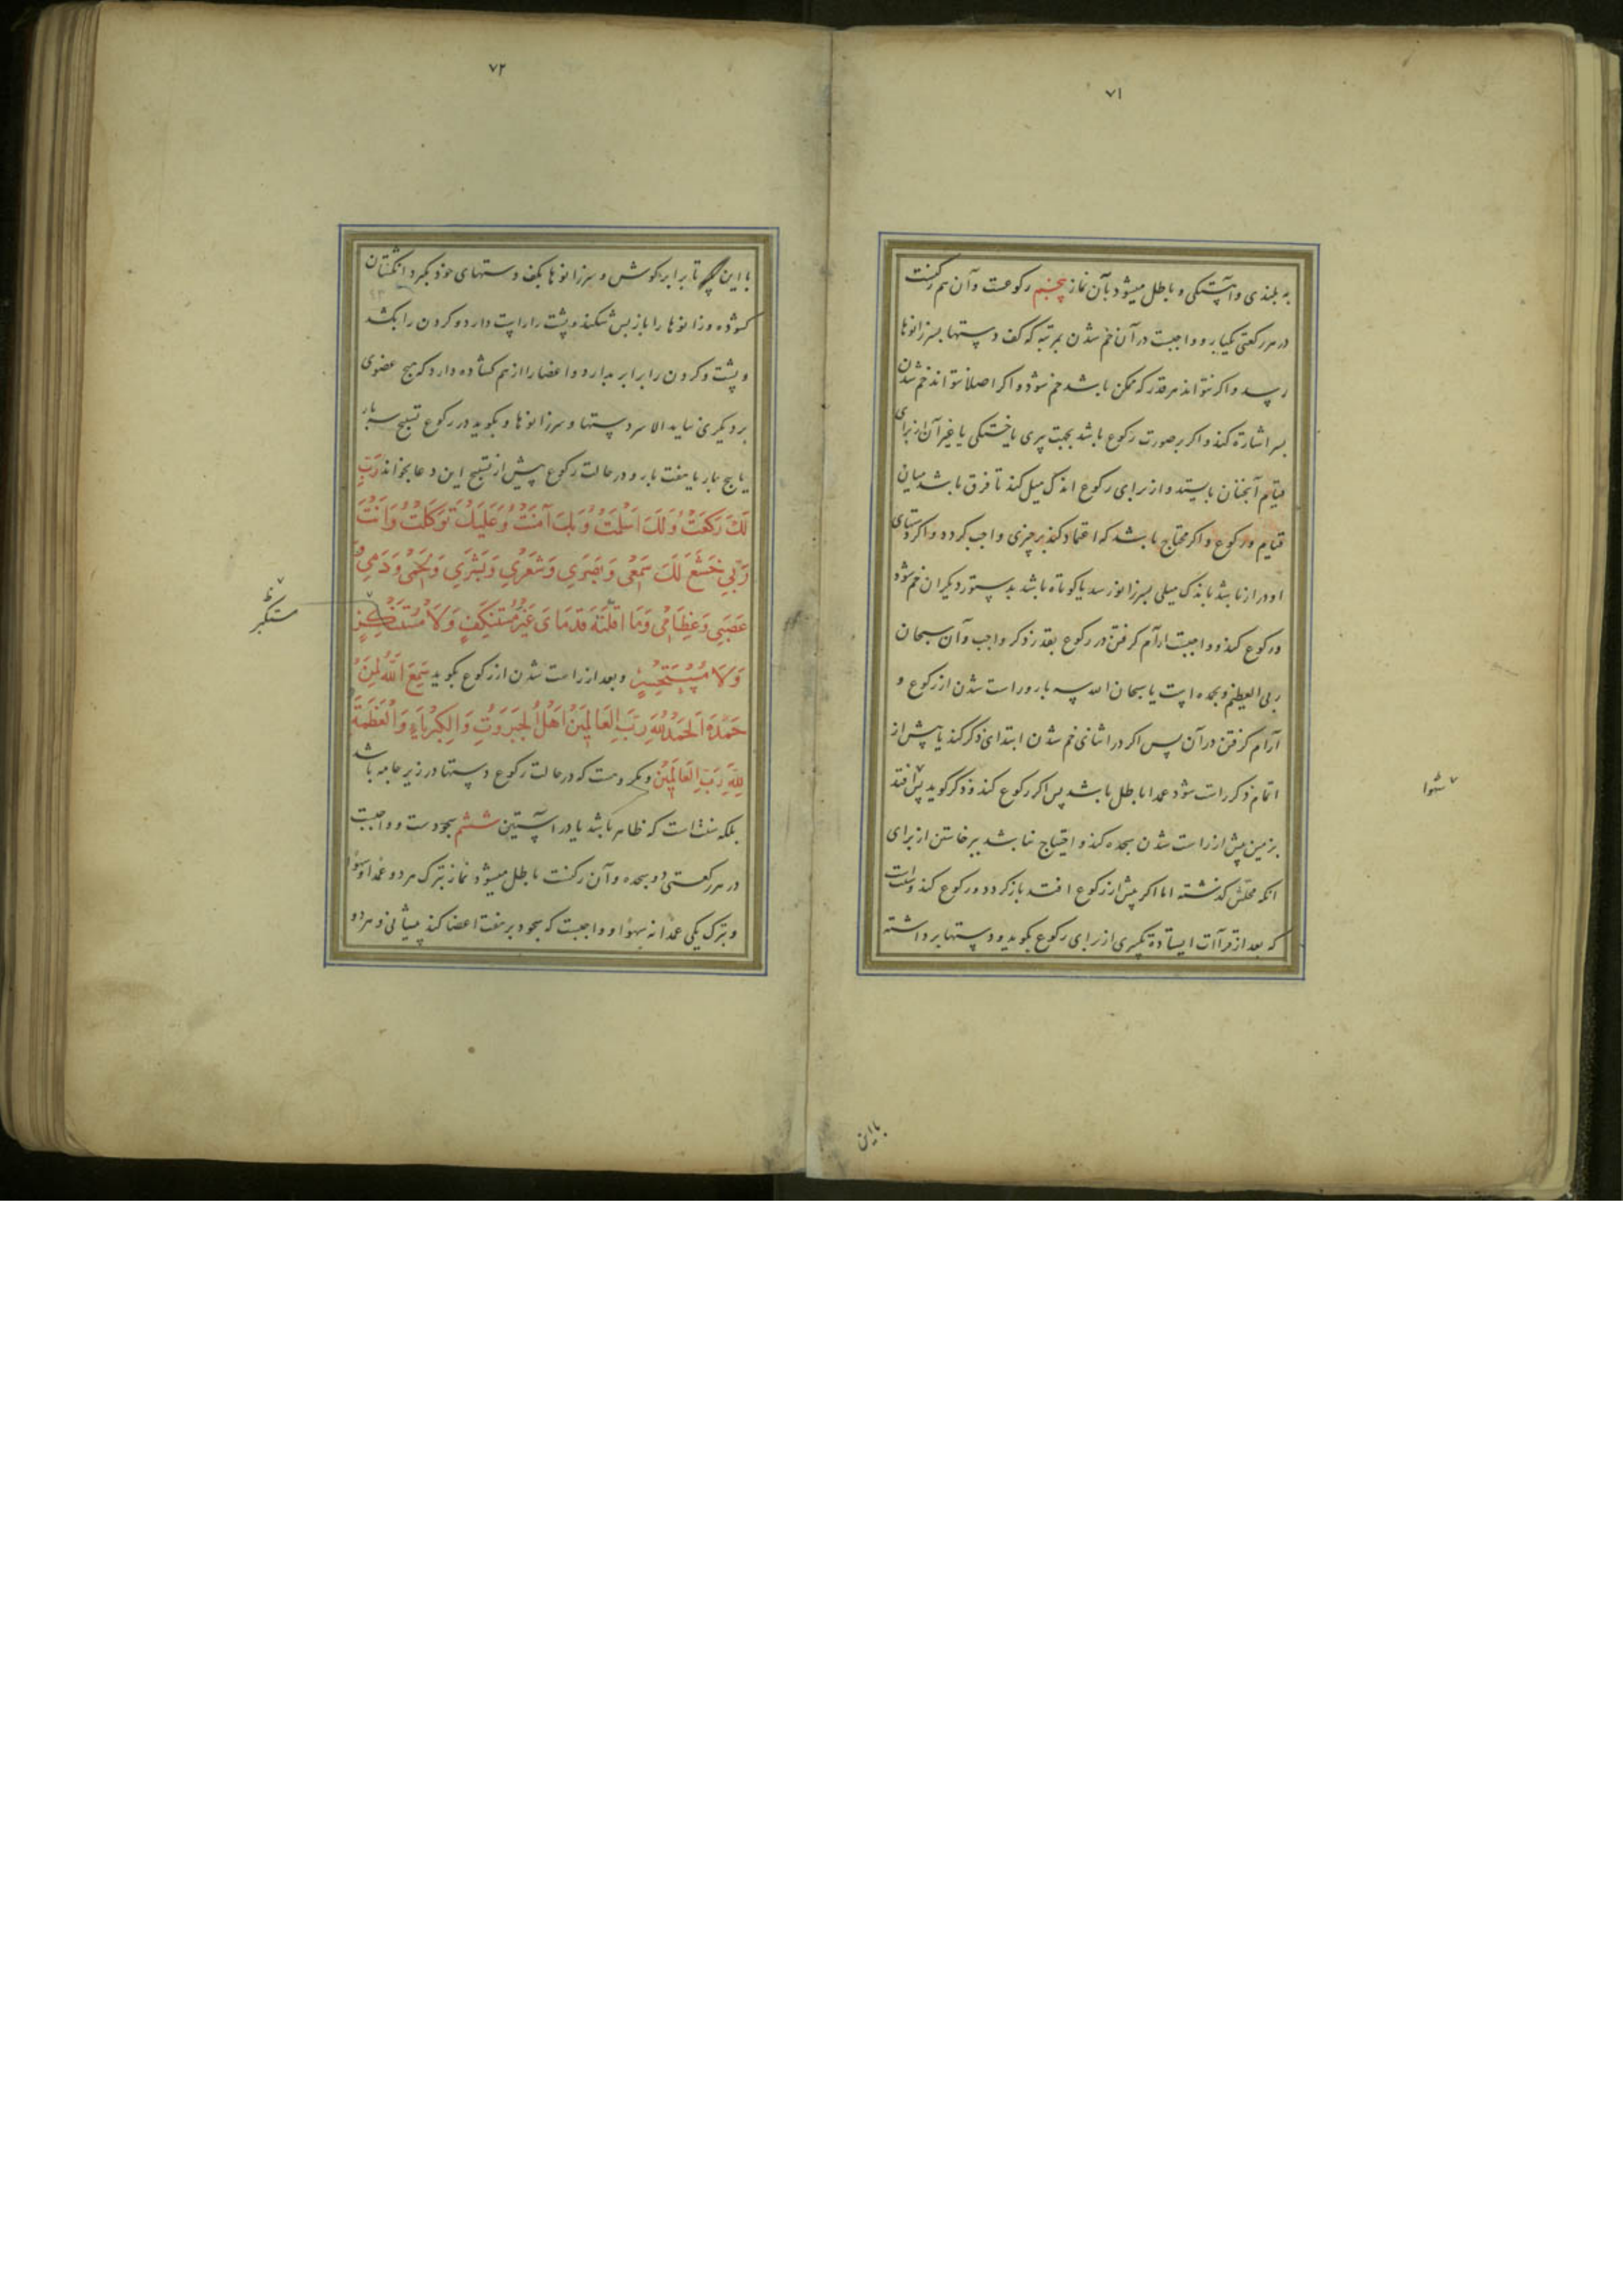 ۷۱
به بلندی و آهستگی و باطل میشود بآن نماز پنجم رکوعست و آن هم رکنست
در هر رکعتی یکبار و واجبست در آن خم شدن بمرتبه که کف دستها بسر زانوها
رسد و اگر نتواند هر قدر که ممکن باشد خم شود و اگر اصلا نتواند خم شدن
بسر اشارة کند و اگر بر صورت رکوع باشد بجهت پیری یا خستگی یا غیر آن از برای
قیام آنچنان بایستد و از برای رکوع اندک میل کند تا فرق باشد میان
قیام و رکوع و اگر محتاج باشد که اعتماد کند بر چیزی واجب گردد و اگر دستهای
او دراز باشد باندک میلی بسر زانو رسد یا کوتاه باشد بدستور دیگران خم شود
و رکوع کند و واجبست ارام گرفتن در رکوع بقدر ذکر واجب و آن سبحان
ربی العظیم و بحمده است یا سبحان الله سه بار و راست شدن از رکوع و
آرام گرفتن در آن پس اگر در اثنای خم شدن ابتدای ذکر کند یا پیش از
اتمام ذکر راست شود عمدا باطل باشد پس اگر رکوع کند و ذکر گوید پس افتد
بزمین پیش از راست شدن سجده کند و احتیاج نباشد برخاستن از برای
انکه محلش گذشته اما اگر پیش از رکوع افتد باز گردد و رکوع کند و سنت است
که بعد از قراآت ایستاده تکبیری از برای رکوع بگوید و دستها برداشته
سهوا
باین
۷۲
با این تا برابر گوش و سر زانوها بکف دستهای خود بگیرد انگشتان
گشوده و زانوها را باز پس شکند و پشت را راست دارد و گردن را بکشد
و پشت و گردن را برابر بدارد و اعضا را از هم گشاده دارد که هیچ عضوی
بر دیگری نیاید الا سر دستها و سر زانوها و بگوید در رکوع تسبیح سه بار
یا پنج بار یا هفت بار و در حالت رکوع پیش از تسبیح این دعا بخواند رَبِّ
لَكَ رَكَعْتُ وَلَكَ اَسْلَمْتُ وَبِكَ آمَنْتُ وَعَلَيْكَ تَوَكَّلْتُ وَاَنْتَ
رَبِّي خَشَعَ لَكَ سَمْعِي وَبَصَرِي وَشَعْرِي وَبَشَرِي وَلَحْمِي وَدَمِي وَ
عَصَبِي وَعِظَامِي وَمَا اَقَلَّتْهُ قَدَمَايَ غَيْرَ مُسْتَنْكِفٍ وَلَا
مستکبر
وَلَا مُسْتَحْسِرٍ و بعد از راست شدن از رکوع بگوید سَمِعَ اللهُ لِمَنْ
حَمِدَهُ اَلْحَمْدُ لِلّهِ رَبِّ الْعَالَمِينَ اَهْلُ الْجَبَرُوتِ وَالْكِبْرِيَاءِ وَالْعَظَمَةُ
لِلّهِ رَبِّ الْعَالَمِينَ و مکروهست که در حالت رکوع دستها در زیر جامه باشد
بلکه سنت است که ظاهر باشد یا در آستین ششم سجودست و واجبست
در هر رکعتی دو سجده و آن رکنست باطل میشود نماز بترک هر دو عمدا و سهوا
و بترک یکی عمدا نه سهوا و واجبست که سجود بر هفت اعضا کند پیشانی و هر دو